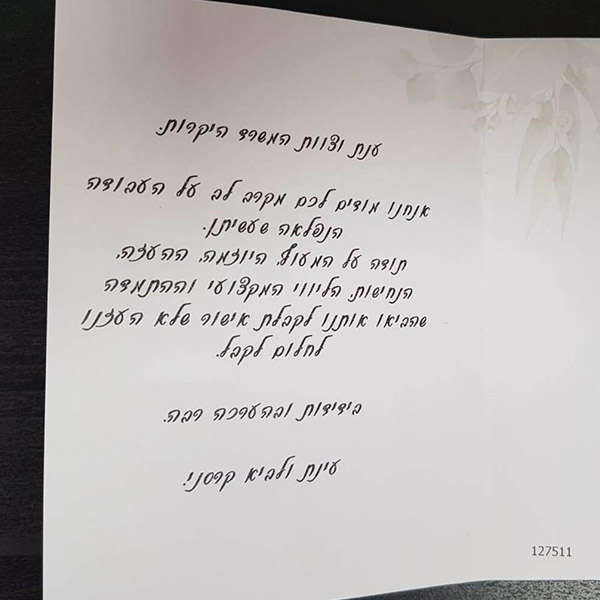 ענת וצוות המשרד היקרות.
אנחנו מודים לכם מקרב לב על העבודה
הנפלאה שעשיתן.
תודה על המעוף, היוזמה, ההעזה,
הנחישות, הליווי המקצועי וההתמדה
שהביאו אותנו לקבלת אישור שלא העזנו
לחלום לקבל.
בידידות ובהערכה רבה.
עינת ולביא קרסני.
127511